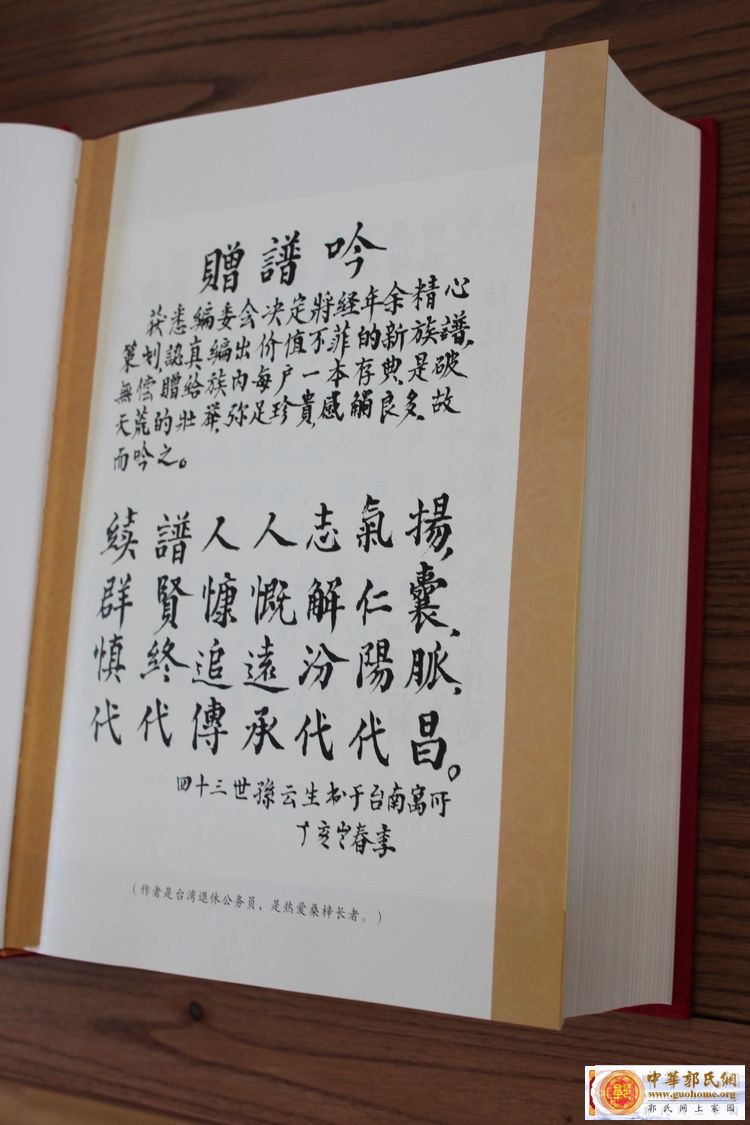 贈譜吟
茲悉編委会决定將经年余精心
策划,認真編出价值不菲的新族譜,
無偿贈給族內每户一本存典,是破
天荒的壯舉,弥足珍貴,感觸良多,故
而吟之。
續譜人人志氣揚,
群賢慷慨解仁囊,
慎終追遠汾陽脈,
代代傳承代代昌。
四十三世孫云生书于台南寓所
丁亥年春季
(作者是台湾退休公务员，是热爱桑梓长者。)
中華郭氏網
www.guohome.org
郭氏网上家园